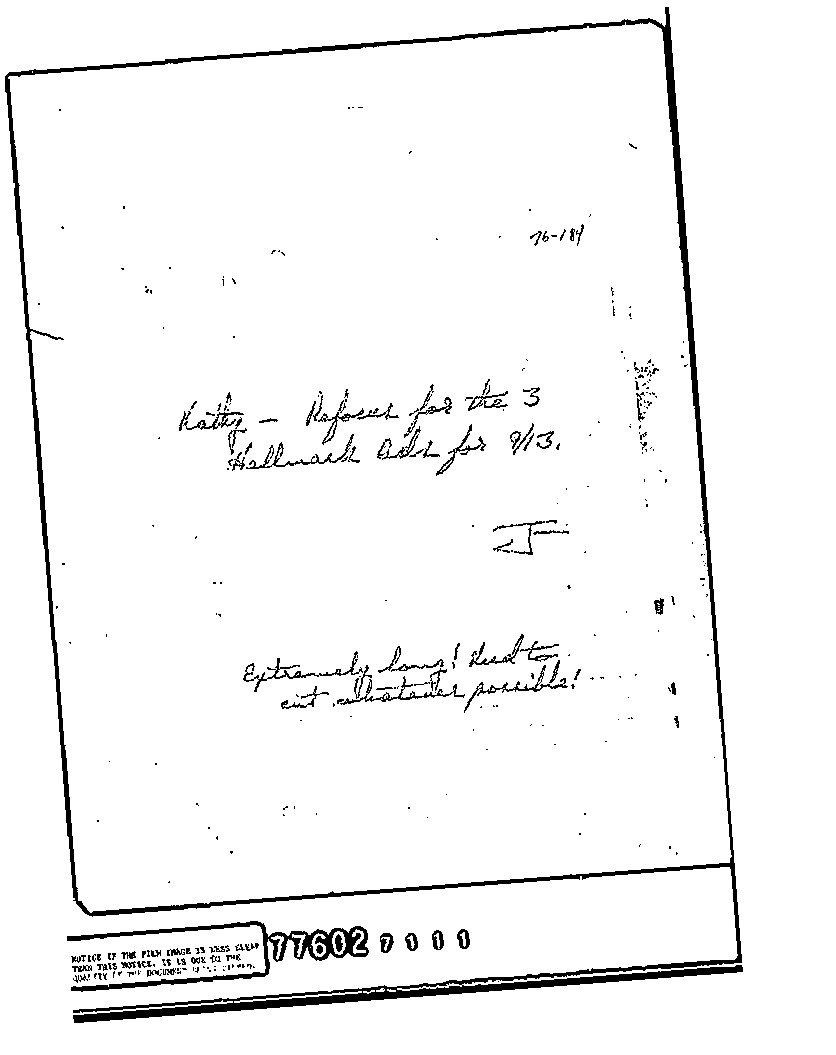 76-184
Kathy - Refocus for the 3
Hallmark Ads for 9/13.
J
Extremely long! Need to
cut whatever possible!
NOTICE IF THE FILM IMAGE IS LESS CLEAR
THAN THIS NOTICE, IT IS DUE TO THE
QUALITY OF THE DOCUMENT
77602 7011